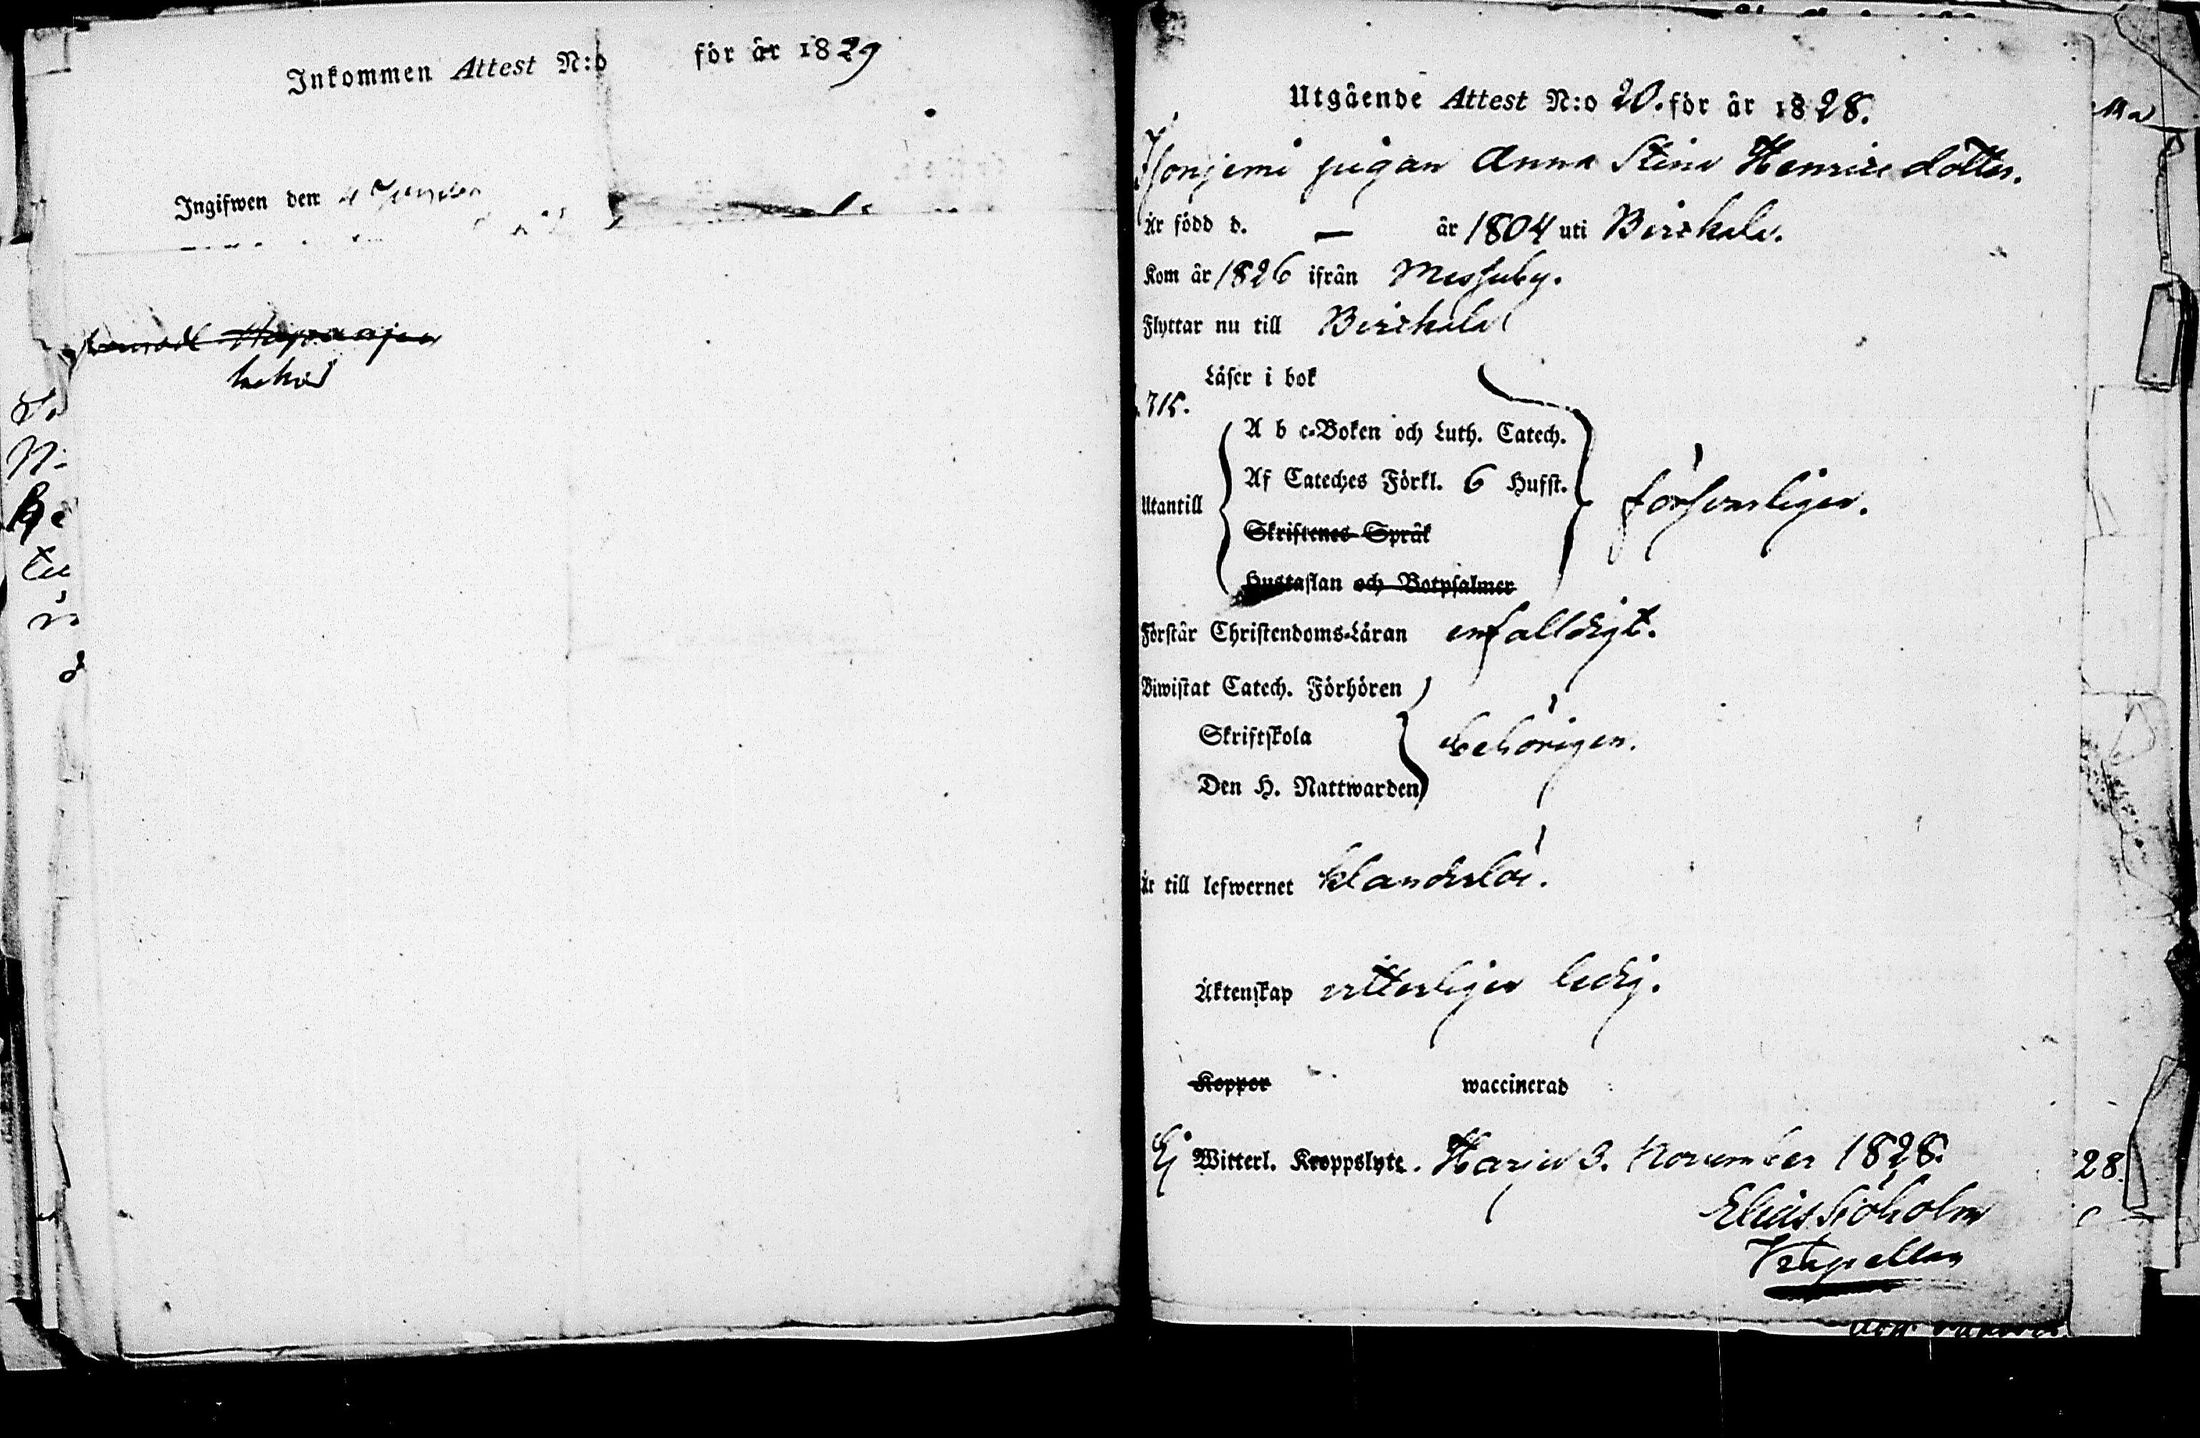 Inkommen Attest N:o för år 1829
Ingifwen den 4
Utgående Attest N:o 20. för år 1828.
pigan Anna Stina Henricsdotter.
Är född d. — år 1804 uti Birckala.
Kom år 1826 ifrån Messuby.
Flyttar nu till Birckala
Läser i bok
A b c-Boken och Luth. Catech.
Af Cateches Förkl. 6 Hufst.
Utantill försvarligen.
Skriftenes Språk
Hustaflan och Botpsalmer
Förstår Christendoms-Läran enfalldigt.
Biwistat Catech. Förhören
Skriftskola behörigen.
Den H. Nattwarden
Är till lefwernet klanderlös.
Äktenskap witterligen ledig.
Koppor waccinerad
Ej Witterl. Kroppslyte. Harju 3. November 1828.
Elias Siöholm
28.